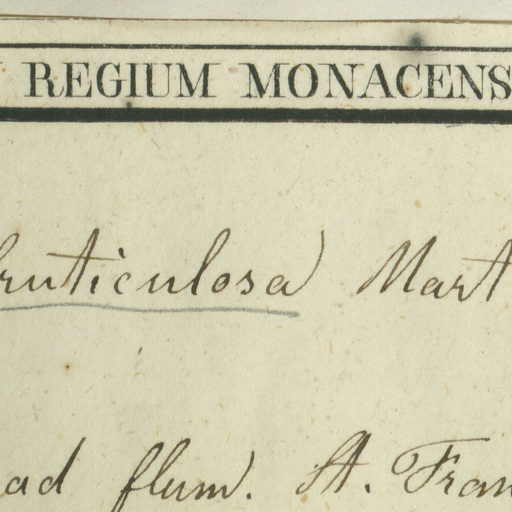 REGIUM MONACENS
fruticulosa Mart
ad flum. St. Fran